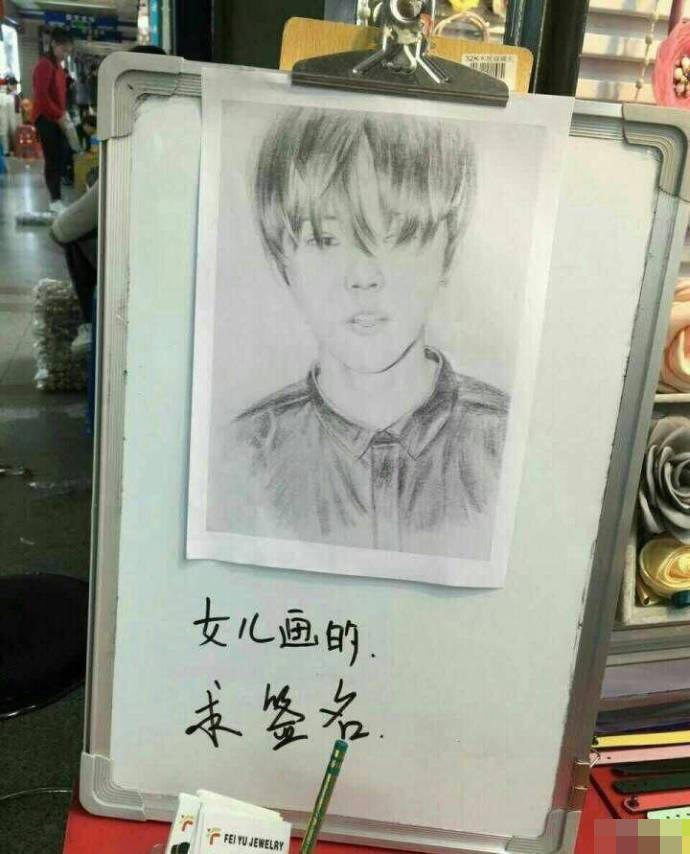 女儿画的.
求签名.
FEI YU JEWELRY